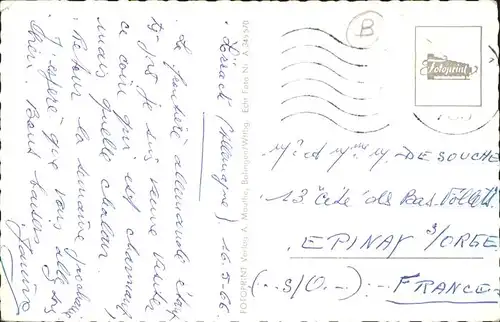 Lörrach (Allemagne) 16-5-66.
La frontière allemande c'est
Dj je suis venue visiter
ce coin qui est charmant
mais quelle chaleur.
Retour la semaine prochaine
J'espère que vous allez
bien. Bons baisers
FOTOPRINT Verlag A. Mauthe, Balingen/Württg. Echt Foto Nr. A 345 570
B
Fotoprint
Mr et Mme M. DESOUCHE
13 Cité de Bas.
EPINAY S/ORGE
(.. S/O. -) : - FRANCE